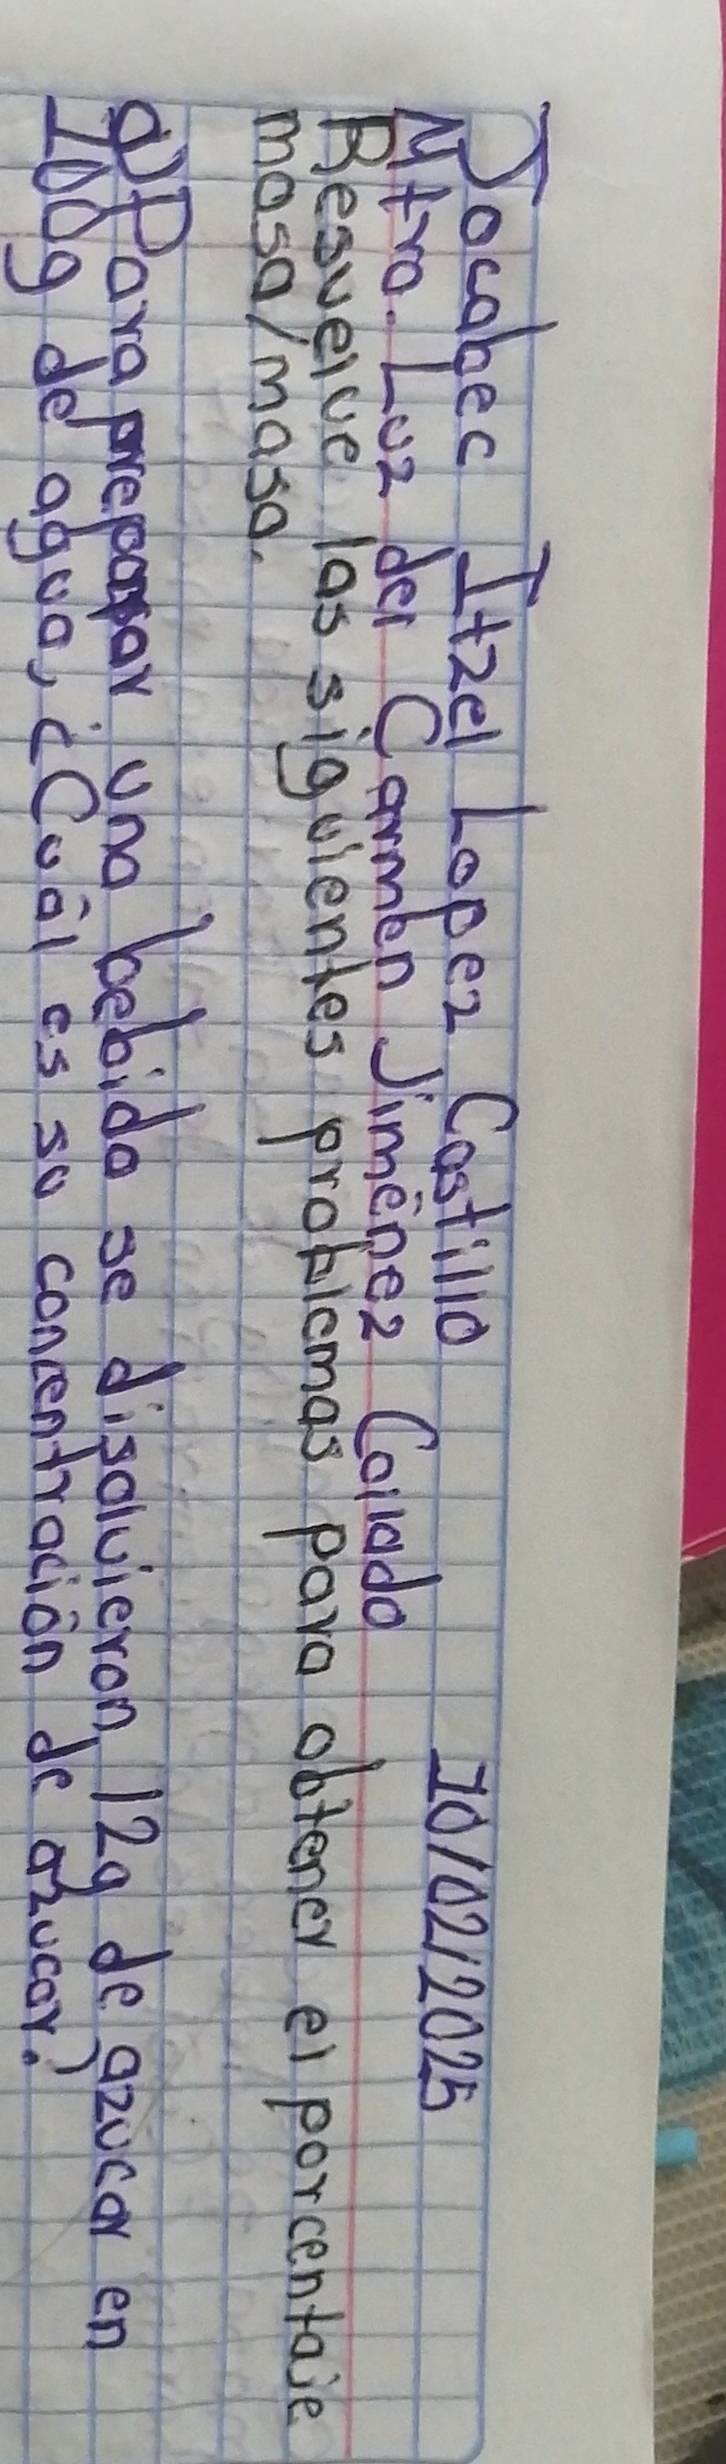 Jocabec Itzel Lopez Castillo 10/02/2025
Mtra. Luz del Carmen Jiménez Collado
Resuelve las siguientes problemas para obtener el porcentaje
masa/masa.
a) Para preparar una bebida se disolvieron 12g de azucar en
100g de agua, ¿Cuál es su concentración de azucar?